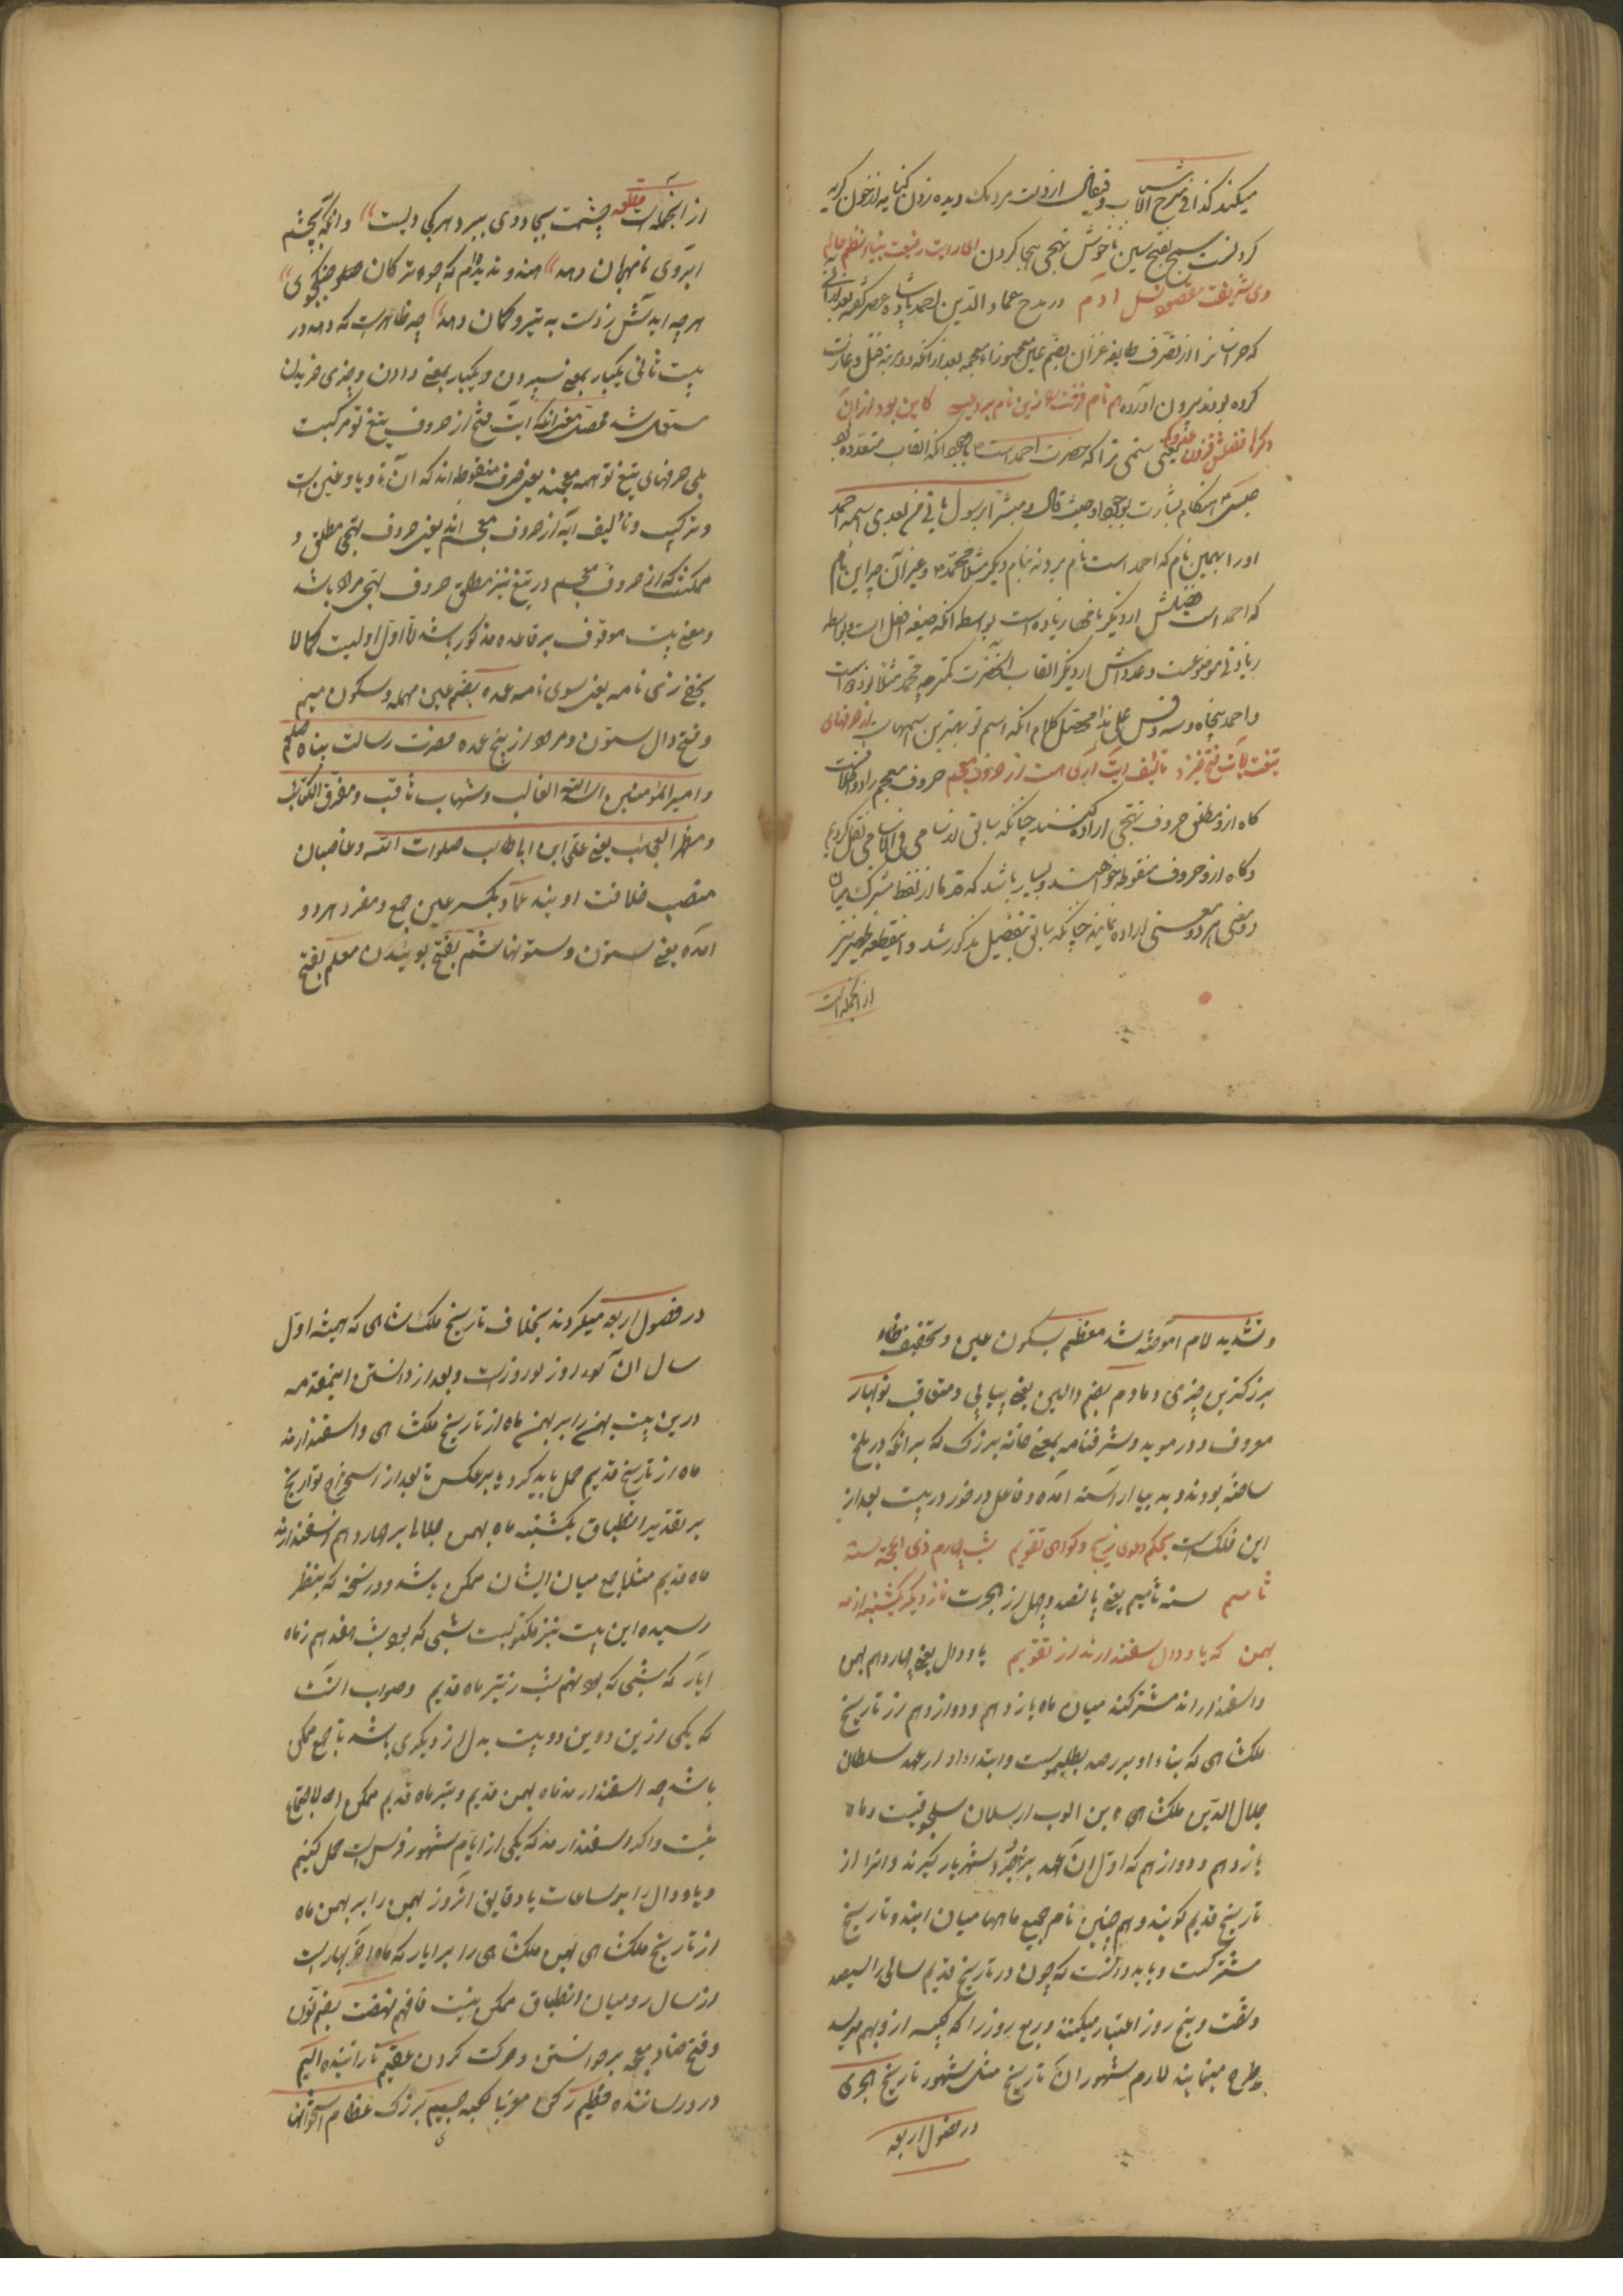 میکنند کذا فی شرح الالباب و قیفال ازوست مردمک دیده زدن کنایه از خون گریه
کردنست سبح بفتح سین ناخوش تهجی هجا کردن ای رایت رفیعت بنیاد نظم عالم
وی شریعت مقصود نسل آدم در مدح عماد الدین احمد پادشاه عصر گفته بعد از آنی
که خراسانرا از تصرف طایفه غزان بضم غین معجمه و زاء معجمه بعد از آنکه دو مرتبه قتل و غارت
کرده بودند بیرون آورده هم نام فرخت را زین نام برد عیسی کاین بود از آن
دگرها فضلش فزون عدد کم یعنی سمی ترا که حضرت احمد است با وجود آنکه القاب متعدده
عیسی هنگام بشارت بوجود او حیث قال و مبشرا برسول یاتی من بعدی اسمه احمد
او را بهمین نام که احمد است نام برد نه بنام دیگر مثلا محمد و غیر آن چرا این نام
که احمد است فضلش از دیگر نامها زیاده است بواسطه آنکه صیغه افعل است و بواسطه
زیادتی موضوعست و عددش از دیگر القاب آنحضرت کمتر چه محمد مثلا نود و دو است
و احمد پنجاه و سه و قس علی هذا محصل کلام آنکه اسم تو بهترین اسمهاست از حرفهای
تیغت آیات فتح خیزد تالیف آیت آری هست از حروف معجم حروف معجم را دو اطلاقست
گاه ازو مطلق حروف تهجی اراده کنند چنانکه سابق از سامی فی الاسامی نقل کردیم
و گاه ازو حروف منقوطه خواهند و بسیار باشد که قدما از لفظ مشترک میان
دو معنی هر دو معنی اراده نمایند چنانکه سابق بتفصیل مذکور شد و این قطعه ظهیر نیز
از آنجمله است
از آنجمله است قطعه چشمت بجادوی ببرد هر کجا دلیست و آنگه بچشم
ابروی نامهربان دهد هندو ندیده‌ام که چو ترکان جنگجوی
هر چه آیدش ز دست به تیر و کمان دهد چه ظاهرست که دهد در
بیت ثانی یکبار بمعنی سپردن و یکبار بمعنی دادن و چیزی خریدن
مستعمل شده محصل معنی آنکه آیت فتح از حروف تیغ تو مرکبست
بلی حرفهای تیغ تو همه معجمند یعنی حرف منقوطه‌اند که آن تا و یا و غین است
و ترکیب و تألیف آیه از حروف معجم اند یعنی حروف تهجی مطلق و
ممکنست که از حروف معجم در تیغ نیز مطلق حروف تهجی مراد باشد
و معنی بیت موقوف بر قاعده مذکور باشد تا اول اولیست کما لا
یخفی زی نامه یعنی سوی نامه عمده بضم عین مهمله و سکون میم
و فتح دال ستون و مراد از پنج عمده حضرت رسالت پناه صلعم
و امیر المؤمنین اسد الله الغالب و شهاب ثاقب و مفرق الکتائب
و مظهر العجایب یعنی علی ابن ابی طالب صلوات الله و غاصبان
منصب خلافت اویند عماد بکسر عین جمع و مفرد هر دو
آمده یعنی ستون و ستونها شم بفتح بوئیدن معلم بفتح
و تشدید لام آموخته شد معظم بسکون عین و تخفیف ظاء
بزرگترین چیزی دمادم بضم دالین یعنی پیاپی و متعاقب نوبهار
معروف و در موید و شرفنامه بمعنی خانه بزرگ که برامکه در بلخ
ساخته بودند و به بسیار آراسته آمده و فاعل در خور در بیت بعد از
این فلکست بحکم دعوی زیج و گواهی تقویم شب چهارم ذی الحجه سنه
ثامیم سنه ثامیم یعنی پانصد و چهل از هجرت نماز دیگر یکشنبه از مه
بهمن که یا و دال سفندارمذ از تقویم یا و دال یعنی چهاردهم بهمن
و اسفندارمذ مشترکند میان ماه یازدهم و دوازدهم از تاریخ
ملکشاهی که بناء او بر رصد بطلیموس است و ابتداء او از عهد سلطان
جلال الدین ملکشاه بن الب ارسلان سلجوقیست و ماه
یازدهم و دوازدهم که اول آن عهد یزدجرد شهریار گیرند و آنرا از
تاریخ قدیم گویند و همچنین نام جمیع ماهها میان ایند و تاریخ
مشترکست و باید دانست که چون در تاریخ قدیم سالی را سیصد
و شصت و پنج روز اعتبار میکنند و ربع روز را که کبیسه ازو بهم میرسد
طرح مینمایند لازم شهور آن تاریخ مثل شهور تاریخ هجری
در فصول اربعه
در فصول اربعه میگردند بخلاف تاریخ ملکشاهی که همیشه اول
سال آن اول روز نوروزست و بعد از دانستن اینمقدمه
درین بیت بهمن را بر بهمن ماه از تاریخ ملکشاهی و اسفندارمذ
ماه از تاریخ قدیم حمل باید کرد یا بر عکس تا بعد از استخراج تواریخ
بر تقدیر انطباق یکشنبه ماه بهمن جلالی بر چهاردهم اسفندارمذ
ماه قدیم مثلا جمع میان ایشان ممکن باشد و در نسخه که بنظر
رسیده این بیت نیز مکتوبست شبی که بود شب هفدهم ز ماه
ایار که شبی که بود نهم شب ز تیر ماه قدیم و صواب آنست
که یکی ازین دو بیت بدل از دیگری باشد تا جمع ممکن
باشد چه اسفندارمذ ماه بهمن قدیم و تیر ماه قدیم ممکن الاجتماع
نیست و اگر اسفندارمذ که یکی از ایام شهور فرس است حمل کنیم
و یا و دال را بر ساعات یا دقایق آنروز بهمن را بر بهمن ماه
از تاریخ ملکشاهی بهمن ملکشاهی را بر ایار که ماه آخر بهارست
از سال رومیان انطباق ممکن نیست فافهم نهضت بضم نون
و فتح ضاد معجمه برخواستن و حرکت کردن عقیم نازائیده الیم
درد رساننده حطیم رکن مغربی کعبه جسیم بزرگ عظام استخوانها